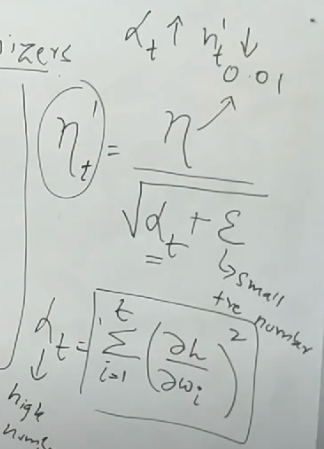 izers
α_t ↑ η'_t ↓
0.01
η'_t = η / √(α_t + ε)
↳ small
+ve number
α_t = Σ_{i=1}^{t} (∂h/∂w_i)^2
high
nume